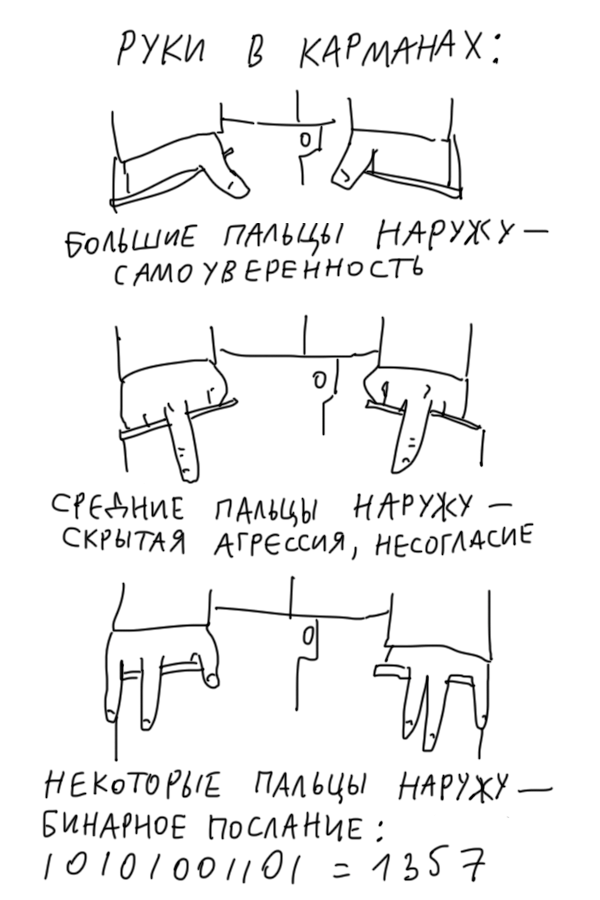 РУКИ В КАРМАНАХ:
БОЛЬШИЕ ПАЛЬЦЫ НАРУЖУ —
САМОУВЕРЕННОСТЬ
СРЕДНИЕ ПАЛЬЦЫ НАРУЖУ —
СКРЫТАЯ АГРЕССИЯ, НЕСОГЛАСИЕ
НЕКОТОРЫЕ ПАЛЬЦЫ НАРУЖУ —
БИНАРНОЕ ПОСЛАНИЕ:
10101001101 = 1357